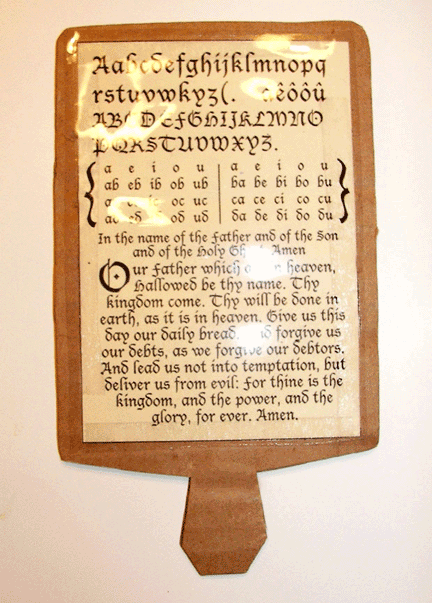 Aabcdefghijklmnopq
rstuvwkyz(. aêôôû
ABCDEFGHIJKLMNO
PQRSTUVWXYZ.
a e i o u a e i o u
ab eb ib ob ub ba be bi bo bu
oc uc ca ce ci co cu
od ud da de di do du
In the name of the Father and of the Son
and of the Holy Amen
Our Father which heaven,
Hallowed be thy name. Thy
kingdom come. Thy will be done in
earth, as it is in heaven. Give us this
day our daily bread. forgive us
our debts, as we forgive our debtors.
And lead us not into temptation, but
deliver us from evil: For thine is the
kingdom, and the power, and the
glory, for ever. Amen.